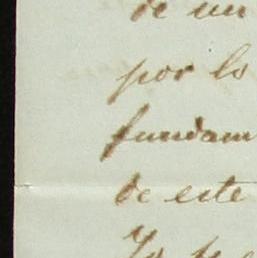 de un
por lo
fundam
de este